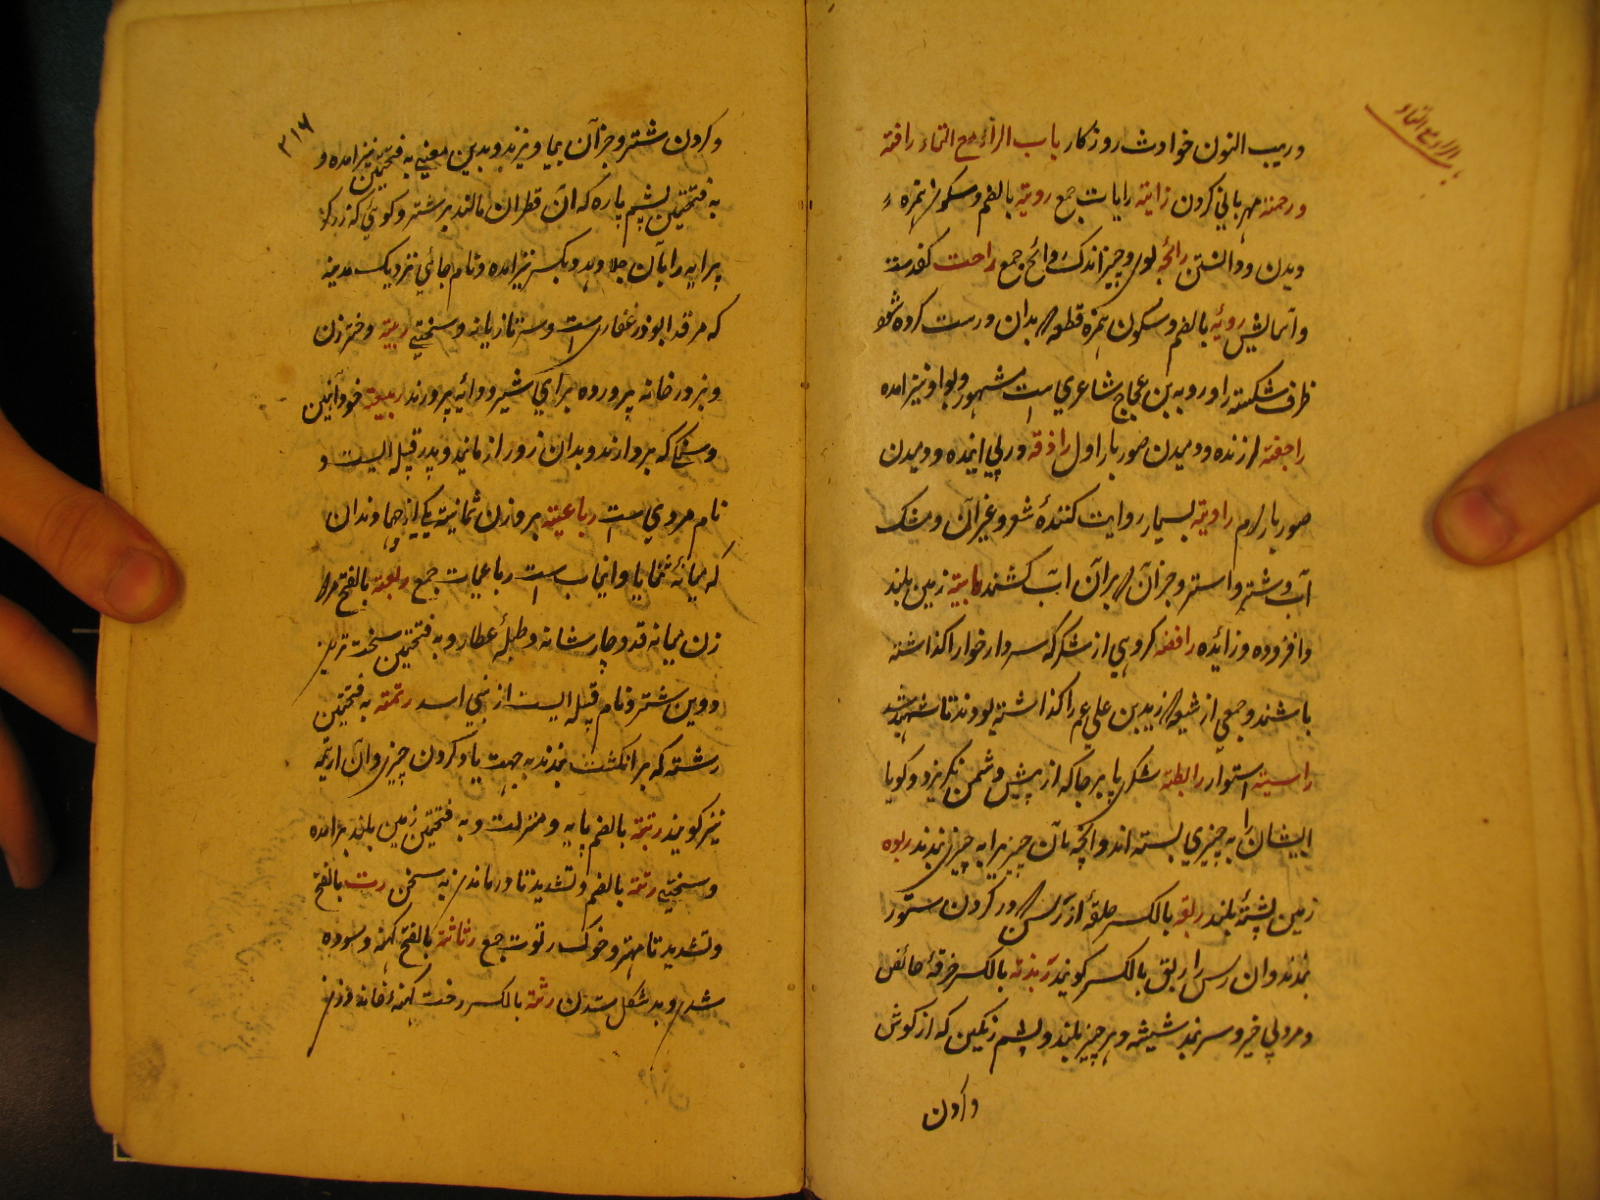 باب الراء مع التاء
وریب النون حوادث روزکار باب الراء مع التاء رافة
و رحمة مهربانی کردن رایة رایات جمع رویة بالضم و سکون همزه
دیدن و دانستن رائحه بوی و چیز اندک روائح جمع راحت کفدست
و آسایش رویه بالضم و سکون همزه قطعه بدان درست کرده شود
ظرف شکسته را و روبه بن عجاج شاعری است مشهور و بواو نیز امده
راجفة لرزنده و دمیدن صور بار اول رادفه در پی اینده و دمیدن
صور بار دوم راویة بسیار روایت کننده شعر و غیر آن و مشک
آب و شتر و استر و جز آن که بر آن آب کشند رابیة زمین بلند
و افزوده و زائده رافضه کروهی از لشکر که سردار خود را کذاشته
باشند و جمعی از شیعه که زید بن علی عم را کذاشته بودند تا شهید شد
راسیة استوار رابطه لشکر پا بر جا که از پیش دشمن نکریزد و کویا
ایشان را به چیزی بسته اند و انچه بآن چیزیرا به چیزی بندند ربوه
زمین پشتهٔ بلند ربقه بالکسر حلقهٔ از رسن که در کردن ستور
بندند و ان رسن را ربق بالکسر کویند ربذة بالکسر خرقهٔ حائض
و مرد بی خیر و سر بند شیشه و هر چیز بلند و پشم رنکین که از کوش
و کردن
۲۱۶
و کردن شتر و جز آن بیاویزند و بدین معنی به فتحتین نیز امده و
به فتحتین پشم پاره که ان قطران مالند بر شتر و کوی که زرکر
پرایه را بآن جلا دهد و بکسر نیز امده و نام جائی نزدیک مدینه
که مرقد ابوذر غفاری است و سر تازیانه و سختی ربیبة دختر زن
و بز در خانه پرورده برای شیر و دایه پرورنده ربیعة خود آهنین
و سنکی که بر دارند و بدان زور ازمایند و پدر قبیله ایست و
نام مردی است رباعیة بر وزن ثمانیة یکی از چهار دندان
که میانهٔ ثنایا و انیاب است رباعیات جمع ربعة بالفتح مرد و
زن میانه قد و چارشانه و طبلهٔ عطار و به فتحتین سخت ترین
دویدن شتر و نام قبیله ایست از بنی اسد رتمة به فتحتین
رشته که بر انکشت بندند به جهت یاد کردن چیزی و آن را رتیمه
نیز کویند رتبة بالضم پایه و منزلت و به فتحتین زمین بلند برامده
و سختی رتة بالضم و تشدید تا درماندن به سخن رت بالفتح
و تشدید تا مهتر و خوک رتوت جمع رثاثة بالفتح کهنه و سوده
شدن و بد شکل شدن رثة بالکسر رخت کهنهٔ خانه و زن